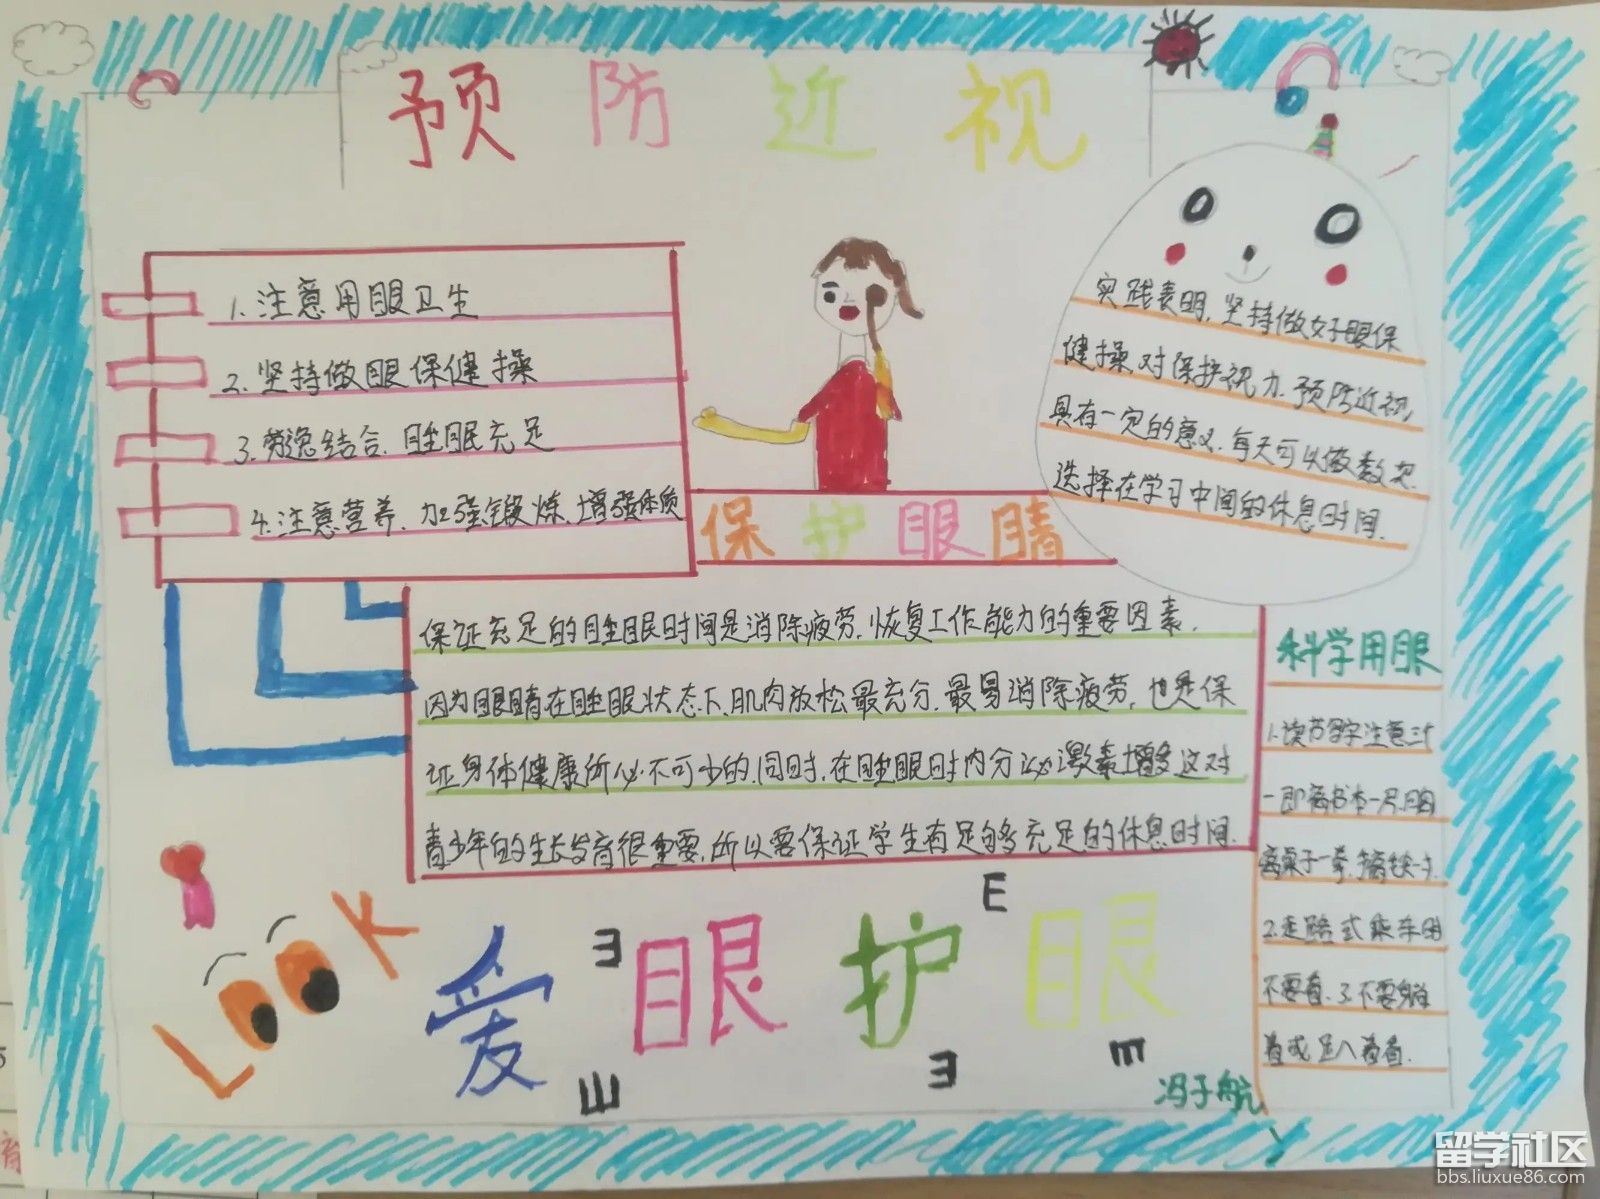 预防近视
1.注意用眼卫生
2.坚持做眼保健操
3.劳逸结合.睡眠充足
4.注意营养.加强锻炼.增强体质
保护眼睛
实践表明,坚持做好眼保
健操对保护视力.预防近视
具有一定的意义.每天可以做数次.
选择在学习中间的休息时间.
保证充足的睡眠时间是消除疲劳.恢复工作能力的重要因素.
因为眼睛在睡眠状态下.肌肉放松最充分.最易消除疲劳,也是保
证身体健康所必不可少的.同时,在睡眠时内分泌激素增多这对
青少年的生长发育很重要.所以要保证学生有足够充足的休息时间.
科学用眼
1.读书写字注意三个
一即离书本一尺.胸
离桌子一拳.
2.走路式乘车时
不要看.3.不要躺
着或
LOOK
爱眼护眼
E
E
E
E
E
冯子航
留学社区
bbs.liuxue86.com